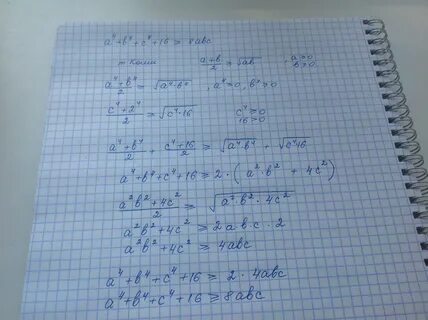 a⁴+b⁴+c⁴+16 ≥ 8abc
т Коши (a+b)/2 ≥ √ab , a≥0, b≥0
(a⁴+b⁴)/2 ≥ √(a⁴·b⁴) , a⁴≥0, b⁴≥0
(c⁴+2⁴)/2 ≥ √(c⁴·16) c⁴≥0 16≥0
(a⁴+b⁴)/2 + (c⁴+16)/2 ≥ √(a⁴b⁴) + √(c⁴·16)
a⁴+b⁴+c⁴+16 ≥ 2·(a²·b² + 4c²)
(a²b²+4c²)/2 ≥ √(a²·b²·4c²)
a²b²+4c² ≥ 2a·b·c·2
a²b²+4c² ≥ 4abc
a⁴+b⁴+c⁴+16 ≥ 2·4abc
a⁴+b⁴+c⁴+16 ≥ 8abc